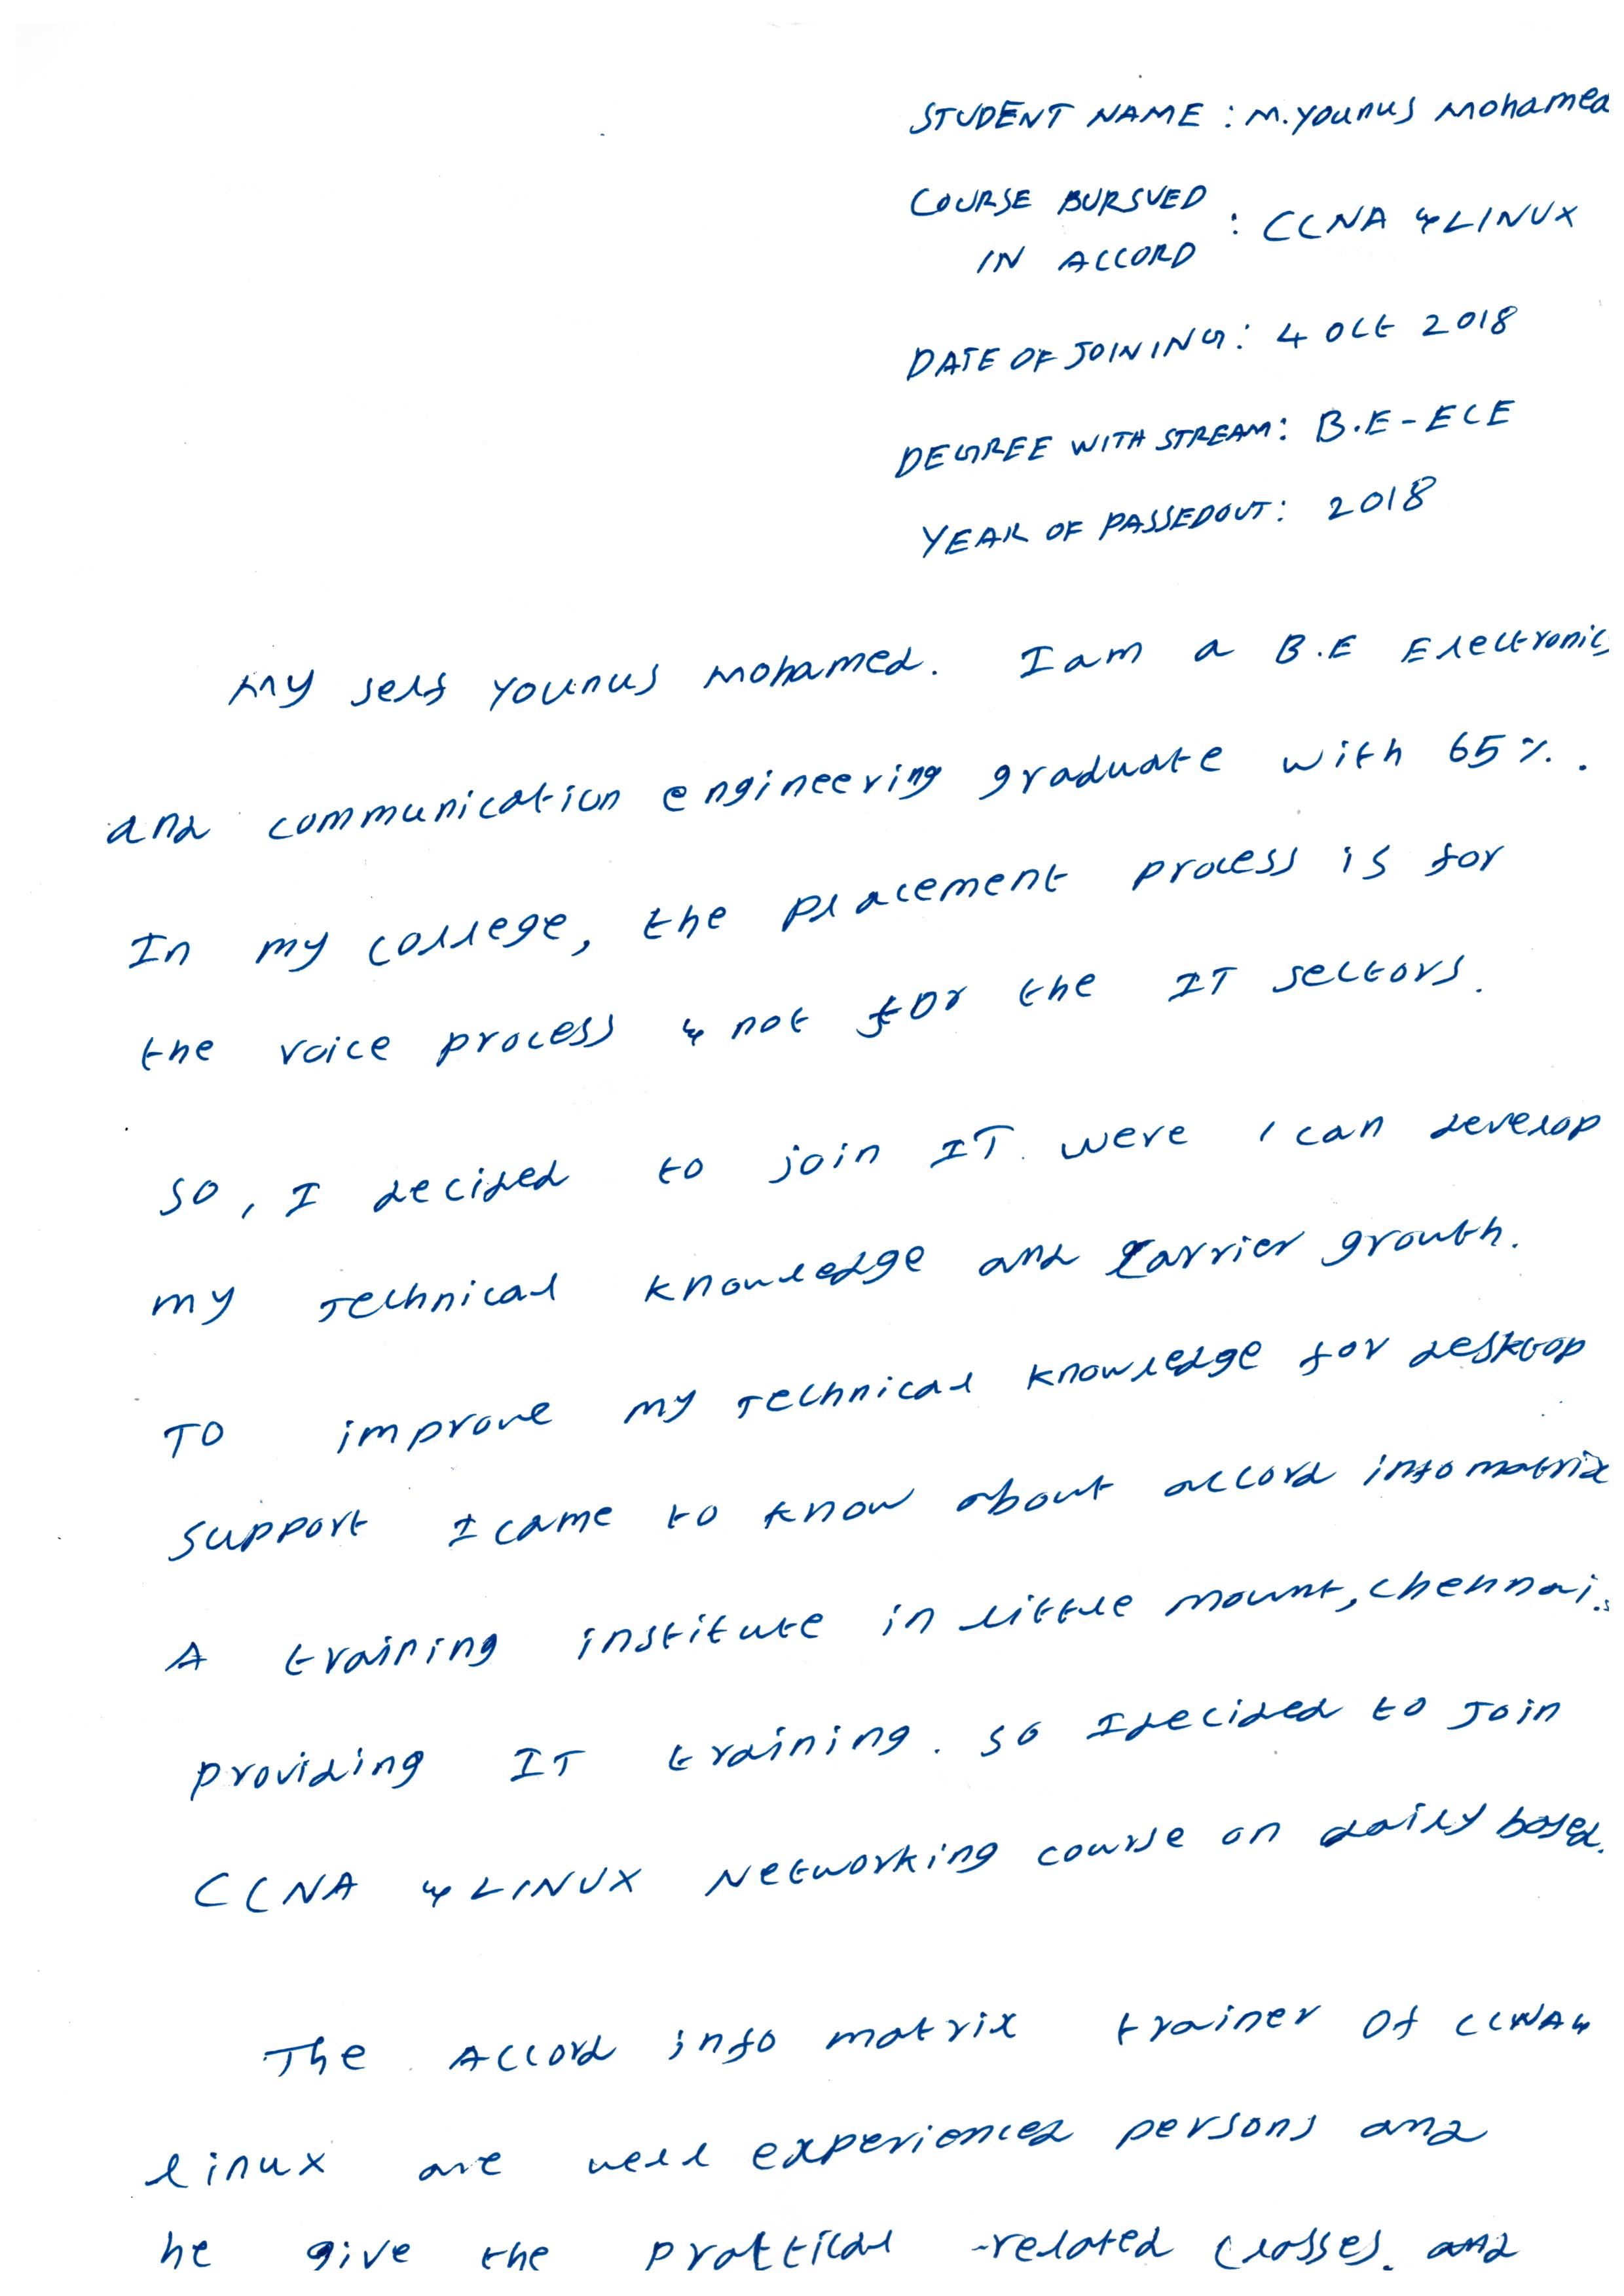 STUDENT NAME : M. Younus Mohamed
COURSE BURSUED
IN ACCORD : CCNA & LINUX
DATE OF JOINING : 4 Oct 2018
DEGREE WITH STREAM : B.E - ECE
YEAR OF PASSEDOUT : 2018
My self Younus Mohamed. I am a B.E Electronics
and communication engineering graduate with 65%.
In my college, the placement process is for
the voice process & not for the IT sectors.
SO, I decided to join IT were I can develop
my Technical knowledge and Carrier growth.
TO improve my Technical knowledge for desktop
support I came to know about accord info matrix
A training institute in little mount, chennai.
providing IT training. so I decided to Join
CCNA & LINUX Networking course on daily based.
The Accord info matrix trainer of CCNA &
linux are well experienced persons and
he give the practical -related classes. and